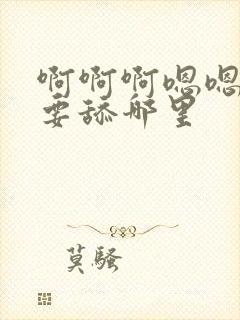 啊啊啊嗯嗯
要舔那里
莫骚